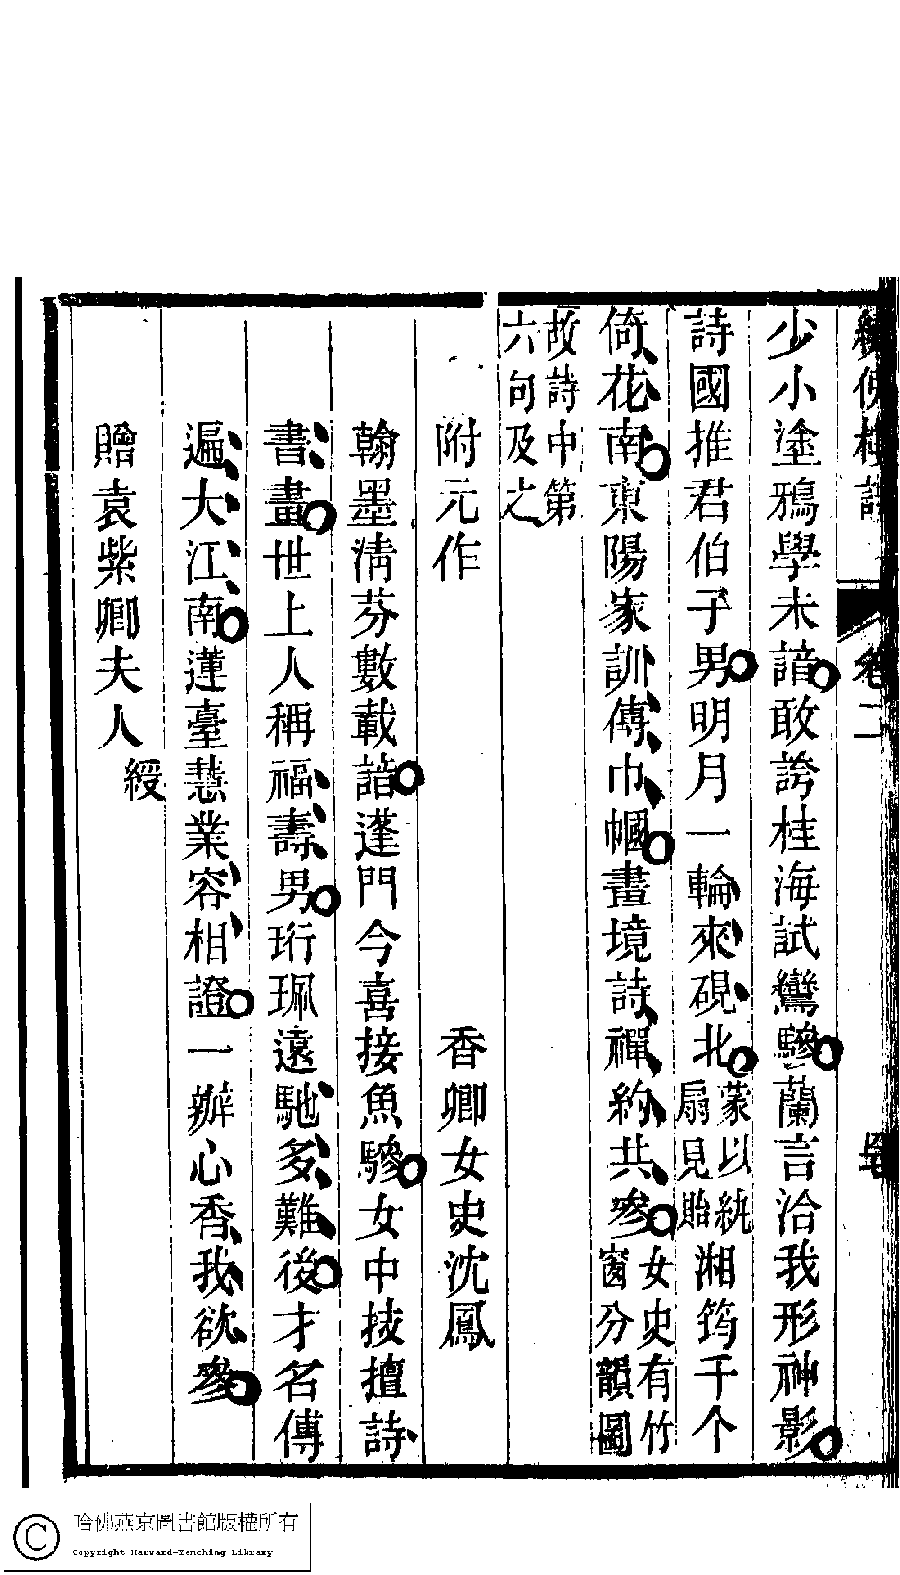 卷二
少小塗鴉學未諳敢誇桂海試鸞驂蘭言洽我形神影
詩國推君伯子男明月一輪來硯北蒙以紈扇見貽湘筠千个
倚花南東陽家訓傳巾幗畫境詩禪約共參女史有竹窗分韻圖
故詩中第六句及之
附元作
香卿女史沈鳳
翰墨淸芬數載諳蓬門今喜接魚驂女中技擅詩
書畫世上人稱福壽男珩珮遠馳多難後才名傳
遍大江南蓮臺慧業容相證一瓣心香我欲參
贈袁紫卿夫人綬
哈佛燕京圖書館版權所有
Copyright Harvard-Yenching Library